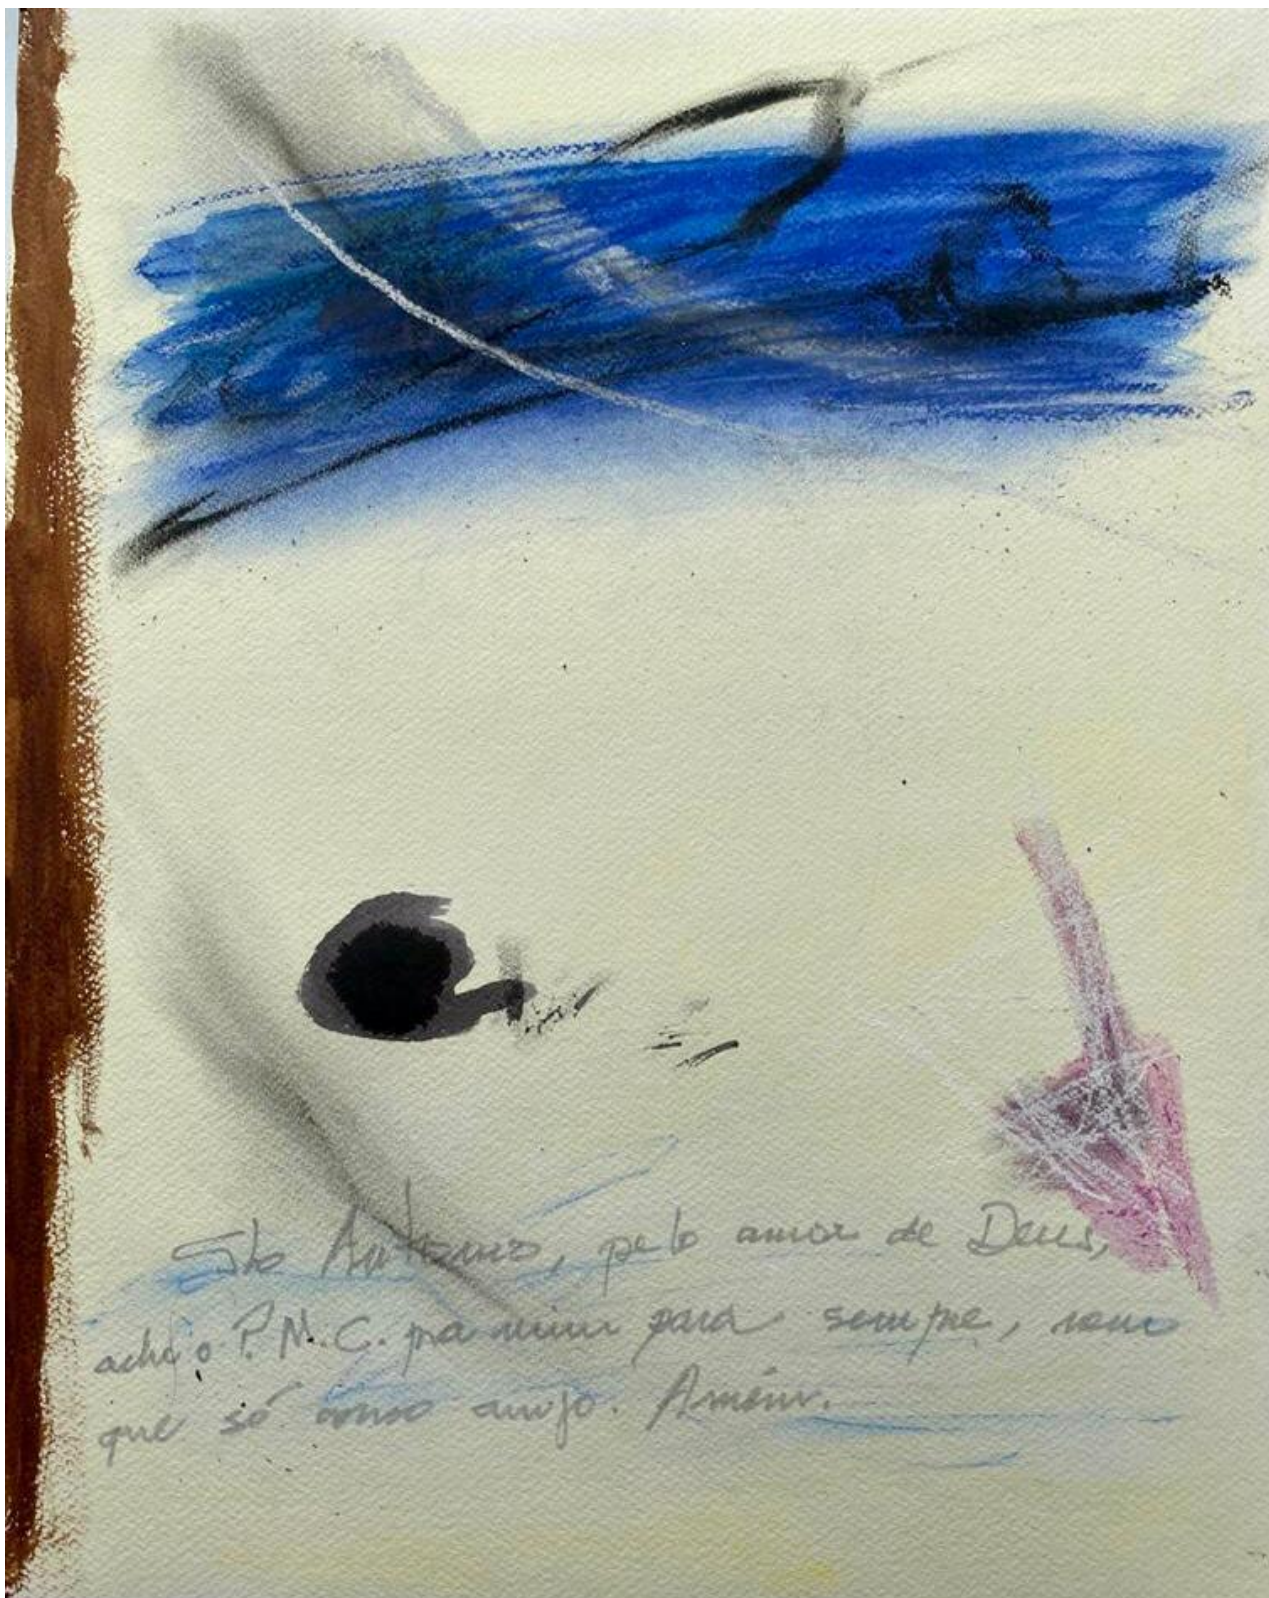 Sto Antonio, pelo amor de Deus,
ache o P.M.C. pra mim para sempre, nem
que só como amigo. Amém.